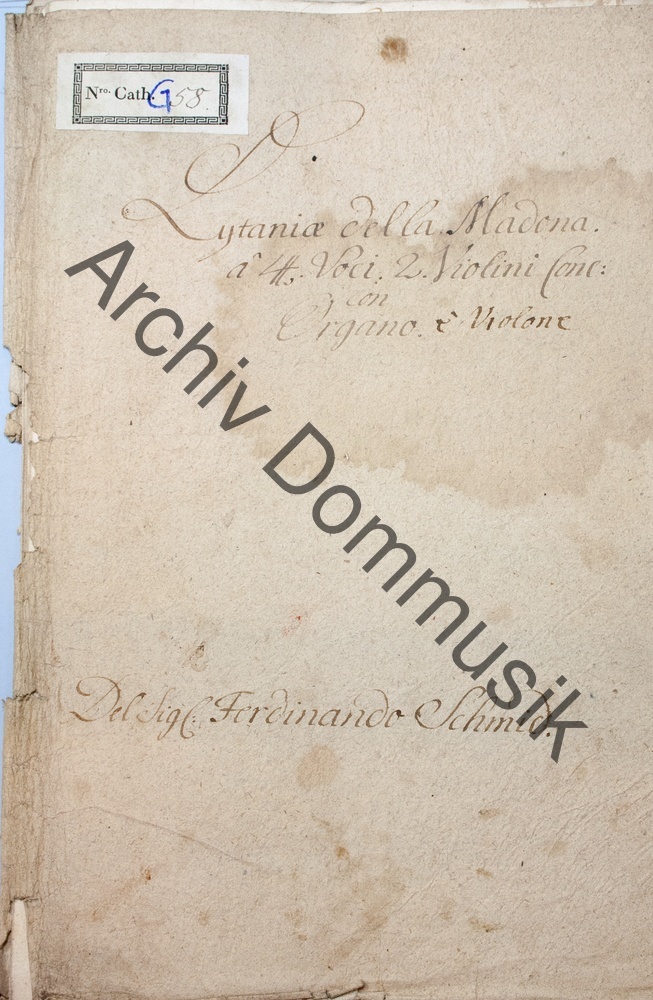 Nro. Cath. G 58.
D.
Lytaniæ della Madona.
a 4. Voci. 2. Violini Conc:
con
Organo. è Violone
Del Sig: Ferdinando Schmid.
Archiv Dommusik